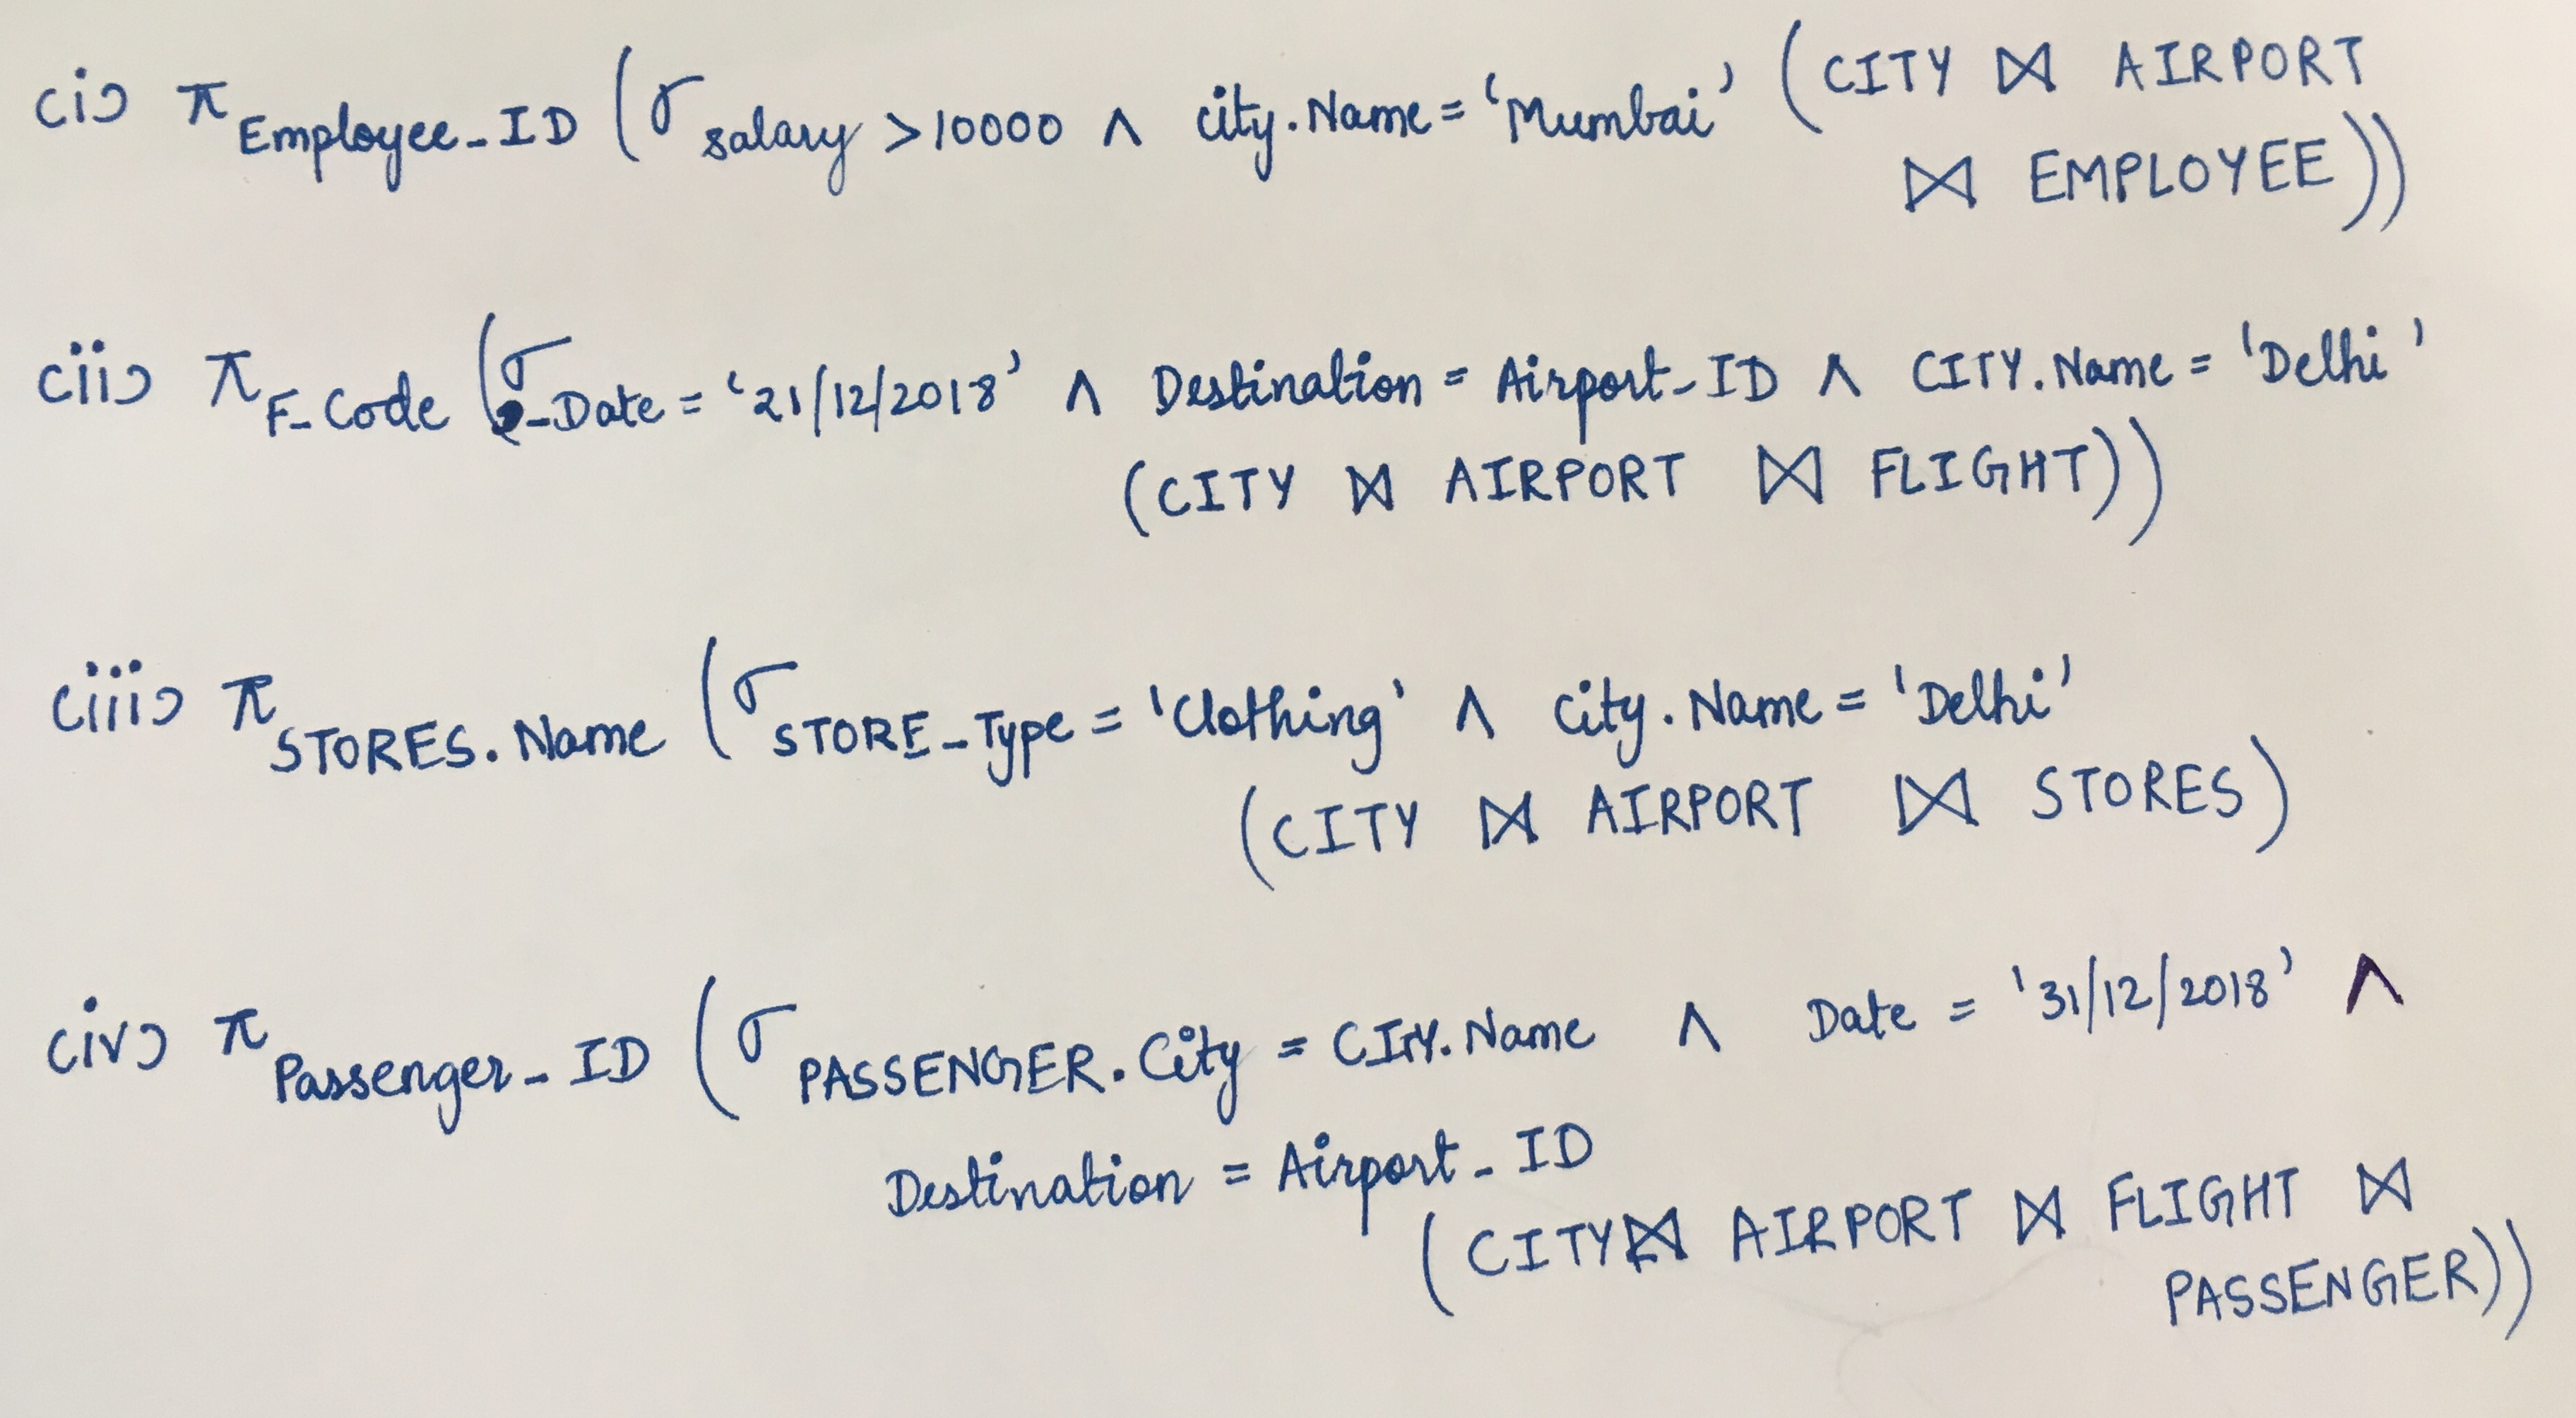 (i) π Employee_ID (σ salary >10000 ∧ city.Name = 'Mumbai' (CITY ⋈ AIRPORT
⋈ EMPLOYEE))
(ii) π F_Code (σ _Date = '21/12/2018' ∧ Destination = Airport_ID ∧ CITY.Name = 'Delhi'
(CITY ⋈ AIRPORT ⋈ FLIGHT))
(iii) π STORES.Name (σ STORE_Type = 'Clothing' ∧ City.Name = 'Delhi'
(CITY ⋈ AIRPORT ⋈ STORES)
(iv) π Passenger_ID (σ PASSENGER.City = CITY.Name ∧ Date = '31/12/2018' ∧
Destination = Airport_ID
(CITY ⋈ AIRPORT ⋈ FLIGHT ⋈
PASSENGER))